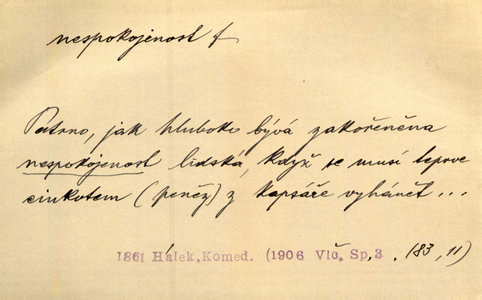 nespokojenost f
Patrno, jak hluboko bývá zakořeněna
nespokojenost lidská, když se musí teprve
cinkotem (peněz) z kapsáře vyhánět...
1861 Hálek, Komed. (1906 Vlč. Sp. 3. (83, 11)